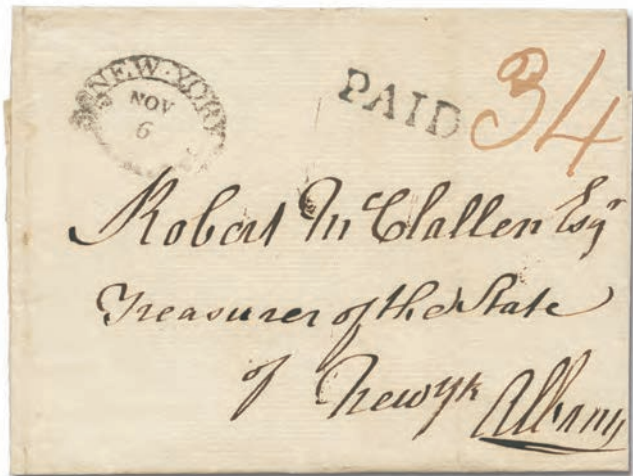 NEW-YORK
NOV
6
PAID
34
Robert McClallen Esqr
Treasurer of the State
of Newyk Albany